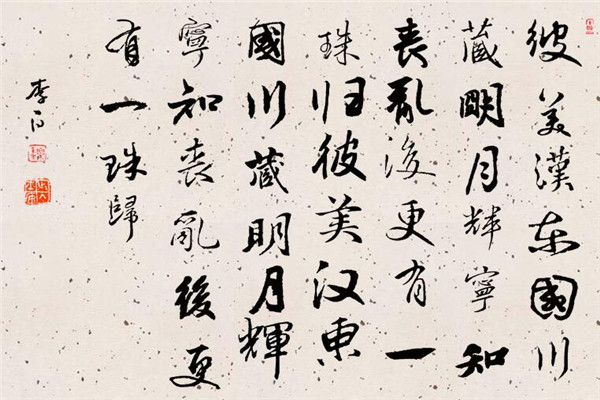 彼美漢东國川
藏明月輝寧知
丧亂後更有一
珠归彼美汉東
國川藏明月輝
寧知丧亂後更
有一珠歸
李白